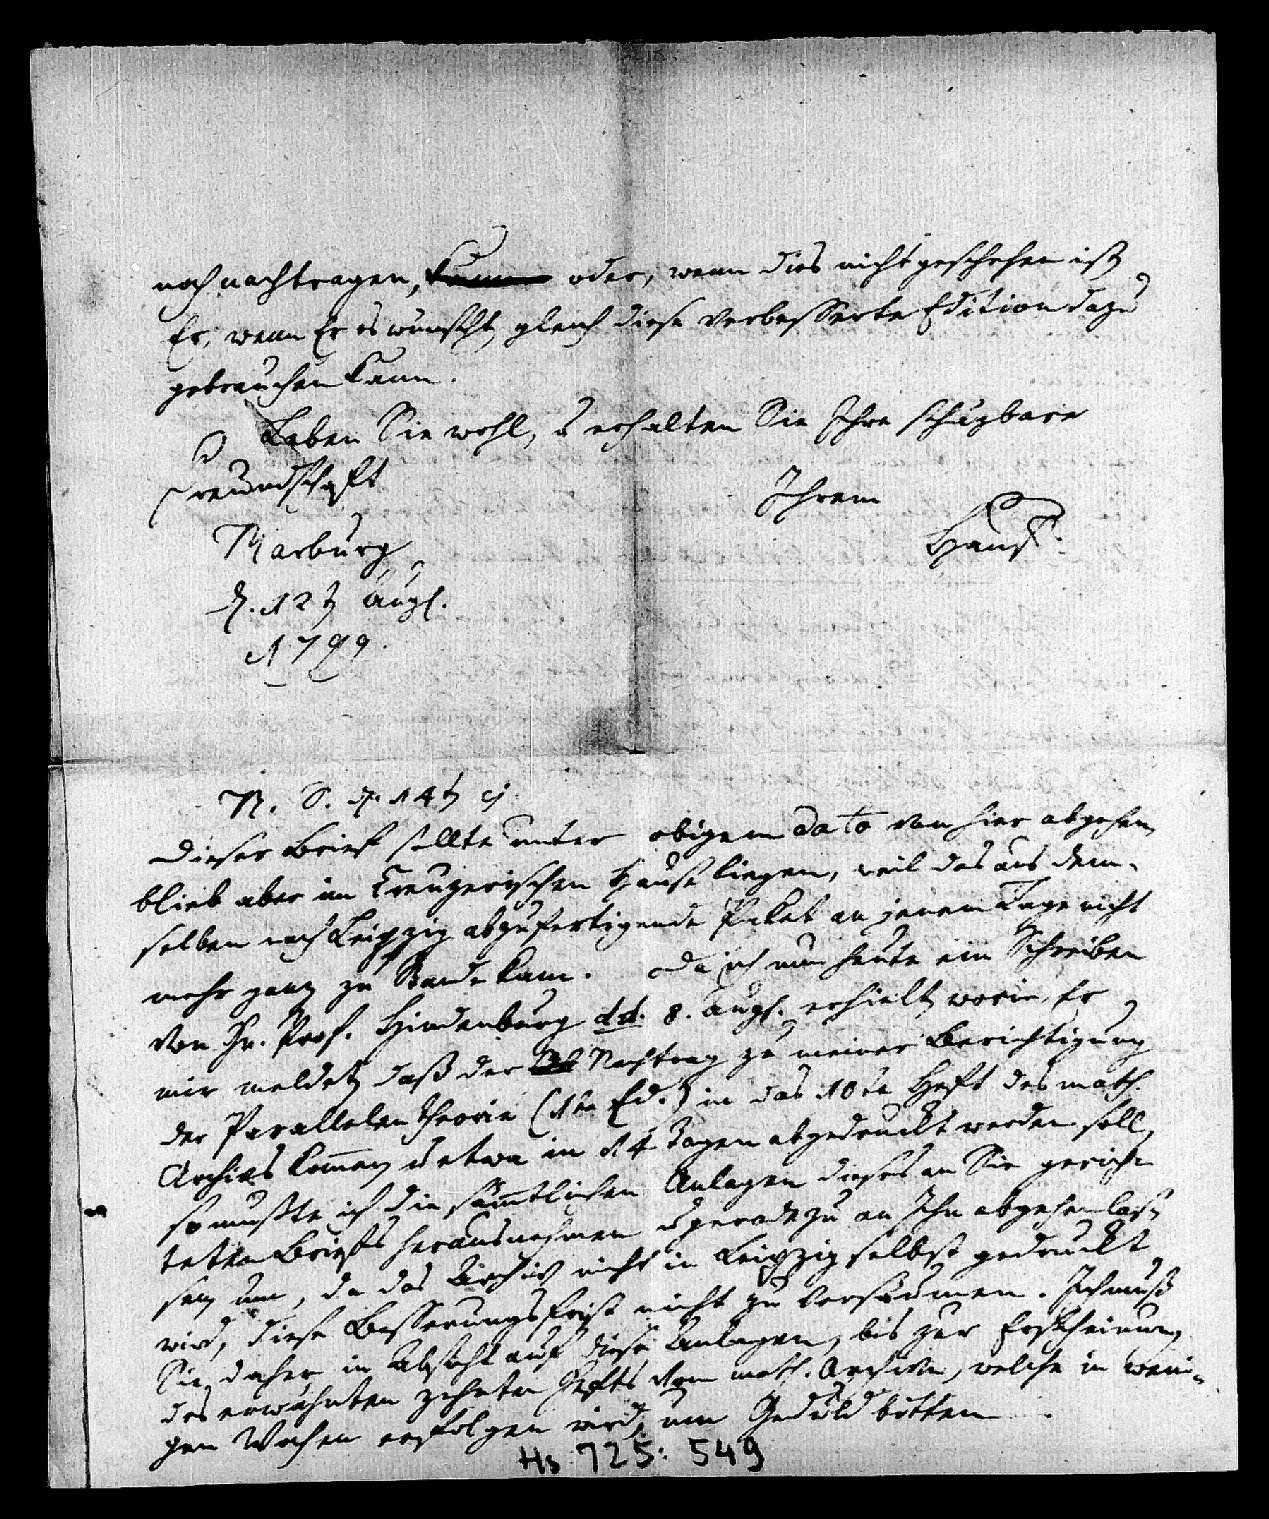 noch nachtragen, kann oder, wenn dies nicht geschehen ist
Er, wenn Er es wünscht, gleich diese verbesserte Edition dazu
gebrauchen kann.
Leben Sie wohl, u erhalten Sie Ihre schäzbare
Freundschaft
Ihrem
Hauff.
Marburg
d. 12t Augs.
1799.
N. S. d. 14t ej
Dieser Brief sollte unter obigem Dato von hier abgehen,
blieb aber im Creuzerischen Hause liegen, weil das aus dem-
selben nach Leipzig abzufertigende Paket an jenem Tage nicht
mehr ganz zu Stande kam. Da ich nun heute ein Schreiben
von Hn. Prof. Hindenburg dd. 8. Augs. erhielt, worin Er
mir meldet, daß der Nachtrag zu meiner Berichtigung
der Parallelentheorie (1te Ed.) in das 10te Heft des math.
Archivs kommen, u etwa in 14 Tagen abgedruckt werden soll,
so mußte ich die sämmtlichen Anlagen dieses an Sie gerich-
teten Briefs herausnehmen u geradezu an Ihn abgehen las-
sen, um, da das Archiv nicht in Leipzig selbst gedruckt
wird, diese Besserungsfrist nicht zu versäumen. Ich muß
Sie daher, in Absicht auf diese Anlagen, bis zur Erscheinung
des erwähnten zehnten Hefts vom math. Archiv, welche in weni-
gen Wochen erfolgen wird, um Geduld bitten.
Hs 725: 549